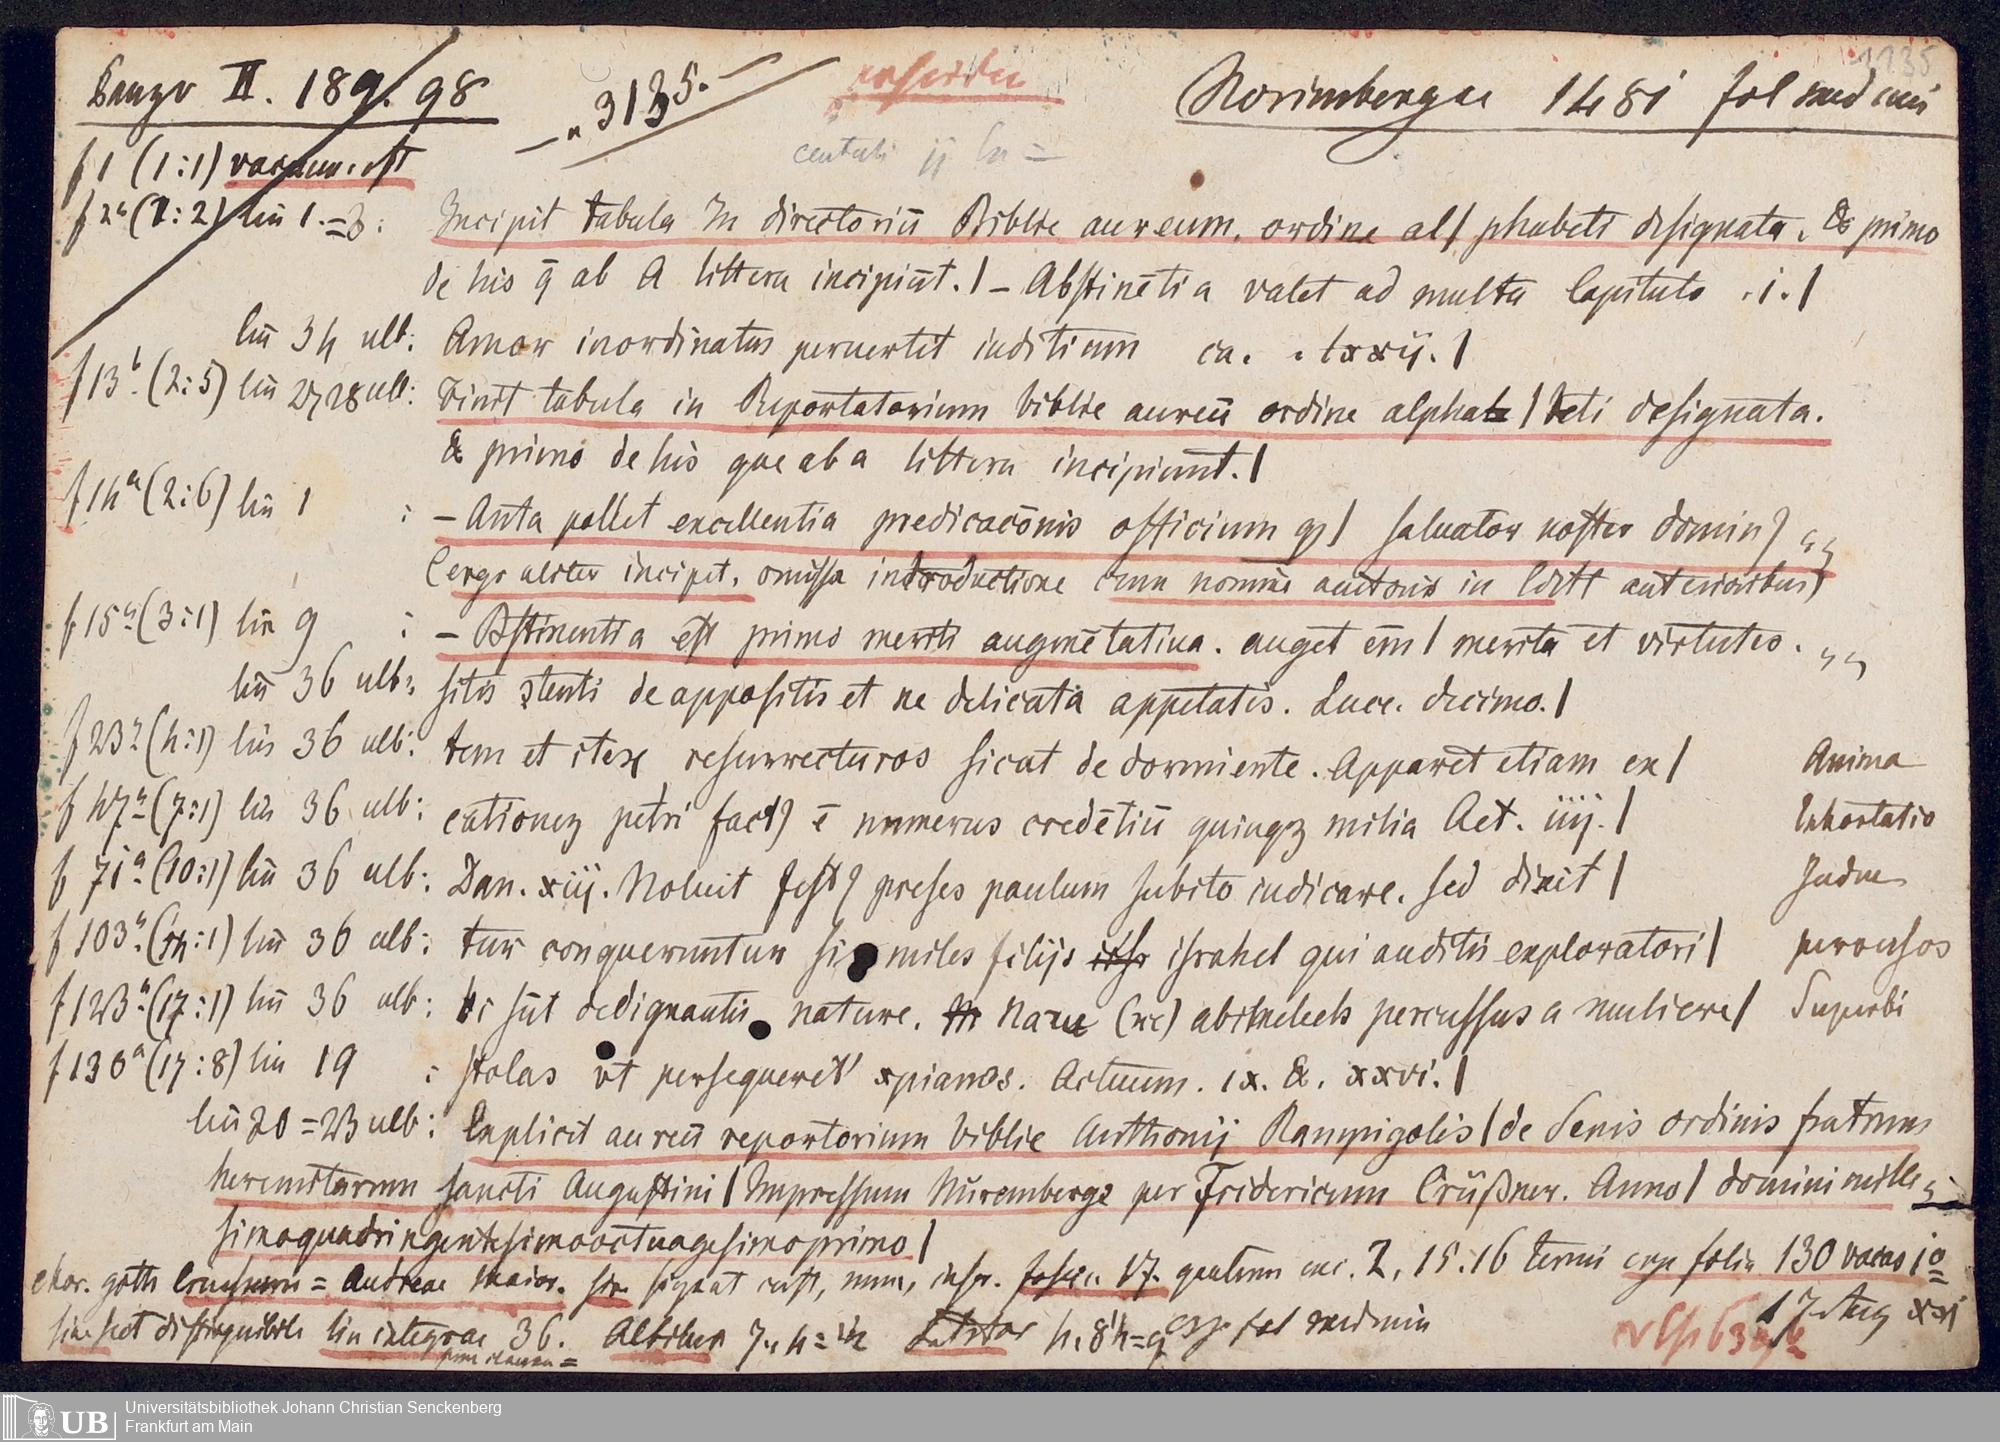 Panzer II. 189. 98
3135.
Norimbergae 1481 fol med min
1135
f 1 (1:1) vacuum est
f 2a (1:2) lin 1.=3: Incipit tabula In directoriū Biblie aureum. ordine al| phabeti designata. & primo
de his q̄ ab A littera incipiūt. | – Abstinētia valet ad multa Capitulo .i. |
lin 34 ult: Amor inordinatus peruertit iuditium ca. . lxxij. |
f 13b (2:5) lin 27, 28 ult: Finit tabula in Reportatorium biblie aureū ordine alphab | beti designata.
& primo de his que ab a littera incipiunt. |
f 14a (2:6) lin 1 : – Anta pollet excellentia predicacōnis officium | saluator noster domin9
(ergo aliter incipit, omissa introductione cum nomine auctoris in editt anterioribus)
f 15a (3:1) lin 9 : – Bstinentia est primo meriti augmētatiua. auget em̄ | merita et virtutes.
lin 36 ult: sitis 9tenti de appositis et ne delicata appetatis. Luce. decimo. |
f 23a (4:1) lin 36 ult: tem et resurrecturos sicut de dormiente. Apparet etiam ex | Anima
f 47a (7:1) lin 36 ult: cationez petri fact9 ē numerus credētiū quinqz milia Act. iiij. | Exhortatio
f 71a (10:1) lin 36 ult: Dan. xiij. Noluit fest9 preses paulum subito iudicare. sed dixit | Judex
f 103a (14:1) lin 36 ult: tur conqueruntur similes filijs israhel qui auditis exploratori |
f 123a (17:1) lin 36 ult: sūt dedignantis nature. Nam abimelech percussus a muliere | Superbi
f 130a (17:8) lin 19 : stolas vt persequeret' xpianos. Actuum. ix. &. xxvi. |
lin 20=23 ult: Explicit aureū reportorium biblie Anthonij Rampigolis | de Senis ordinis fratrum
heremitarum sancti Augustini | Impressum Nuremberge per Fridericum Crüßner. Anno | domini mille
simoquadringentesimooctuagesimoprimo |
char. goth Creusneri = Andreae maior. sin signat cust, num, inscr. fascic 17. quaterni exc. 2, 15. 16 terni ergo folia 130 vacuo 1o
distinguibili lin integrae 36. Altitudo Latitudo ergo fol med min
17 Aug xxi
Universitätsbibliothek Johann Christian Senckenberg
Frankfurt am Main
UB